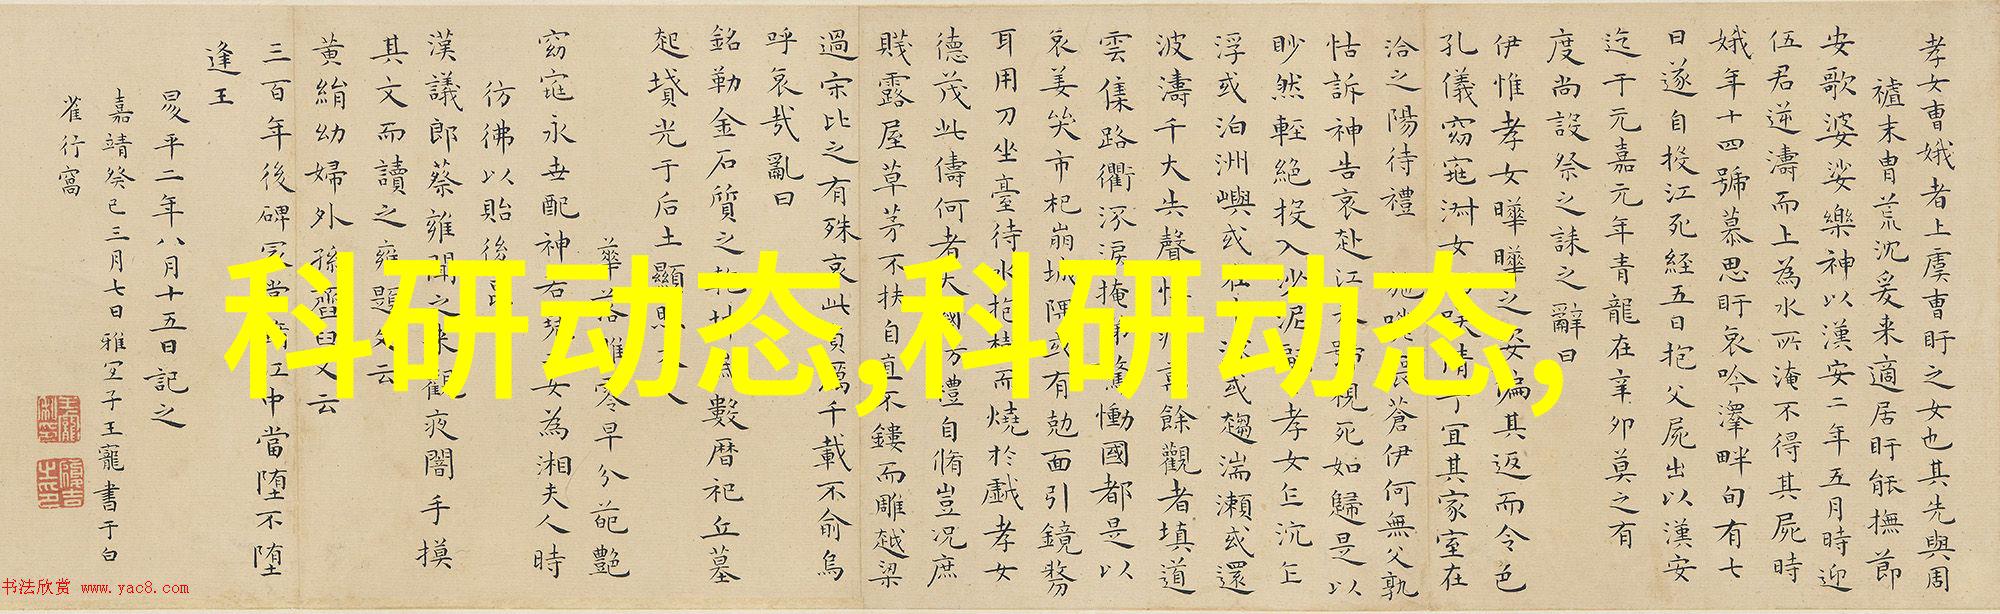 孝女曹娥者上虞曹盱之女也其先與周
禃末曹荒沈爰来適居盱能撫節
安歌婆娑樂神以漢安二年五月時迎
伍君逆濤而上為水所淹不得其屍時
娥年十四號慕思盱哀吟澤畔旬有七
日遂自投江死經五日抱父屍出以漢安
迄于元嘉元年青龍在辛卯莫之有
度尚設祭之誄之辭曰
伊惟孝女曄曄之姿偏其返而令色
孔儀窈窕淑女巧笑倩兮宜其家室在
洽之陽待禮未施嗟喪蒼伊何無父孰
怙訴神告哀赴江永號視死如歸是以
眇然輕絕投入沙泥翩翩孝女乍沉乍
浮或泊洲嶼或在中流或趨湍瀨或還
波濤千夫失聲悼痛萬餘觀者填道
雲集路衢泝淚掩涕驚慟國都是以
哀姜哭市杞崩城隅或有尅面引鏡剺
耳用刀坐臺待水抱柱而燒於戲孝女
德茂此儔何者大國方禮自脩豈況庶
賤露屋草茅不扶自直不鏤而雕越梁
過宋比之有殊哀此貞厲千載不俞烏
呼哀哉亂曰
銘勒金石質之乾坤為數曆祀丘墓
起墳光于后土顯照天人
華落雕零早分葩艷
窈窕永世配神若堯二女為湘夫人時
彷彿以貽後昆
漢議郎蔡雍聞之來觀夜闇手摸
其文而讀之雍題文云
黃絹幼婦外孫齏臼又云
三百年後碑冢當墮江中當墮不墮
逢王
昪平二年八月十五日記之
嘉靖癸巳三月七日雅宜子王寵書于白
雀行窩
科研动态,科研动态,
书法欣赏 www.yac8.com